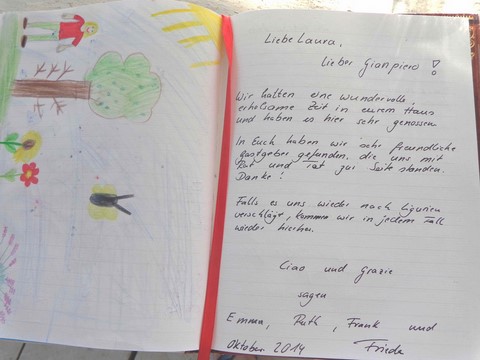 Liebe Laura,
Lieber Gianpiero!
Wir hatten eine wundervolle
erholsame Zeit in eurem Haus
und haben es hier sehr genossen
In Euch haben wir sehr freundliche
Gastgeber gefunden, die uns mit
Rat und Tat zur Seite standen.
Danke!
Falls es uns wieder nach Ligurien
verschlägt, kommen wir in jedem Fall
wieder hierher.
Ciao und grazie
sagen
Emma, Ruth, Frank und
Oktober 2014 Friede